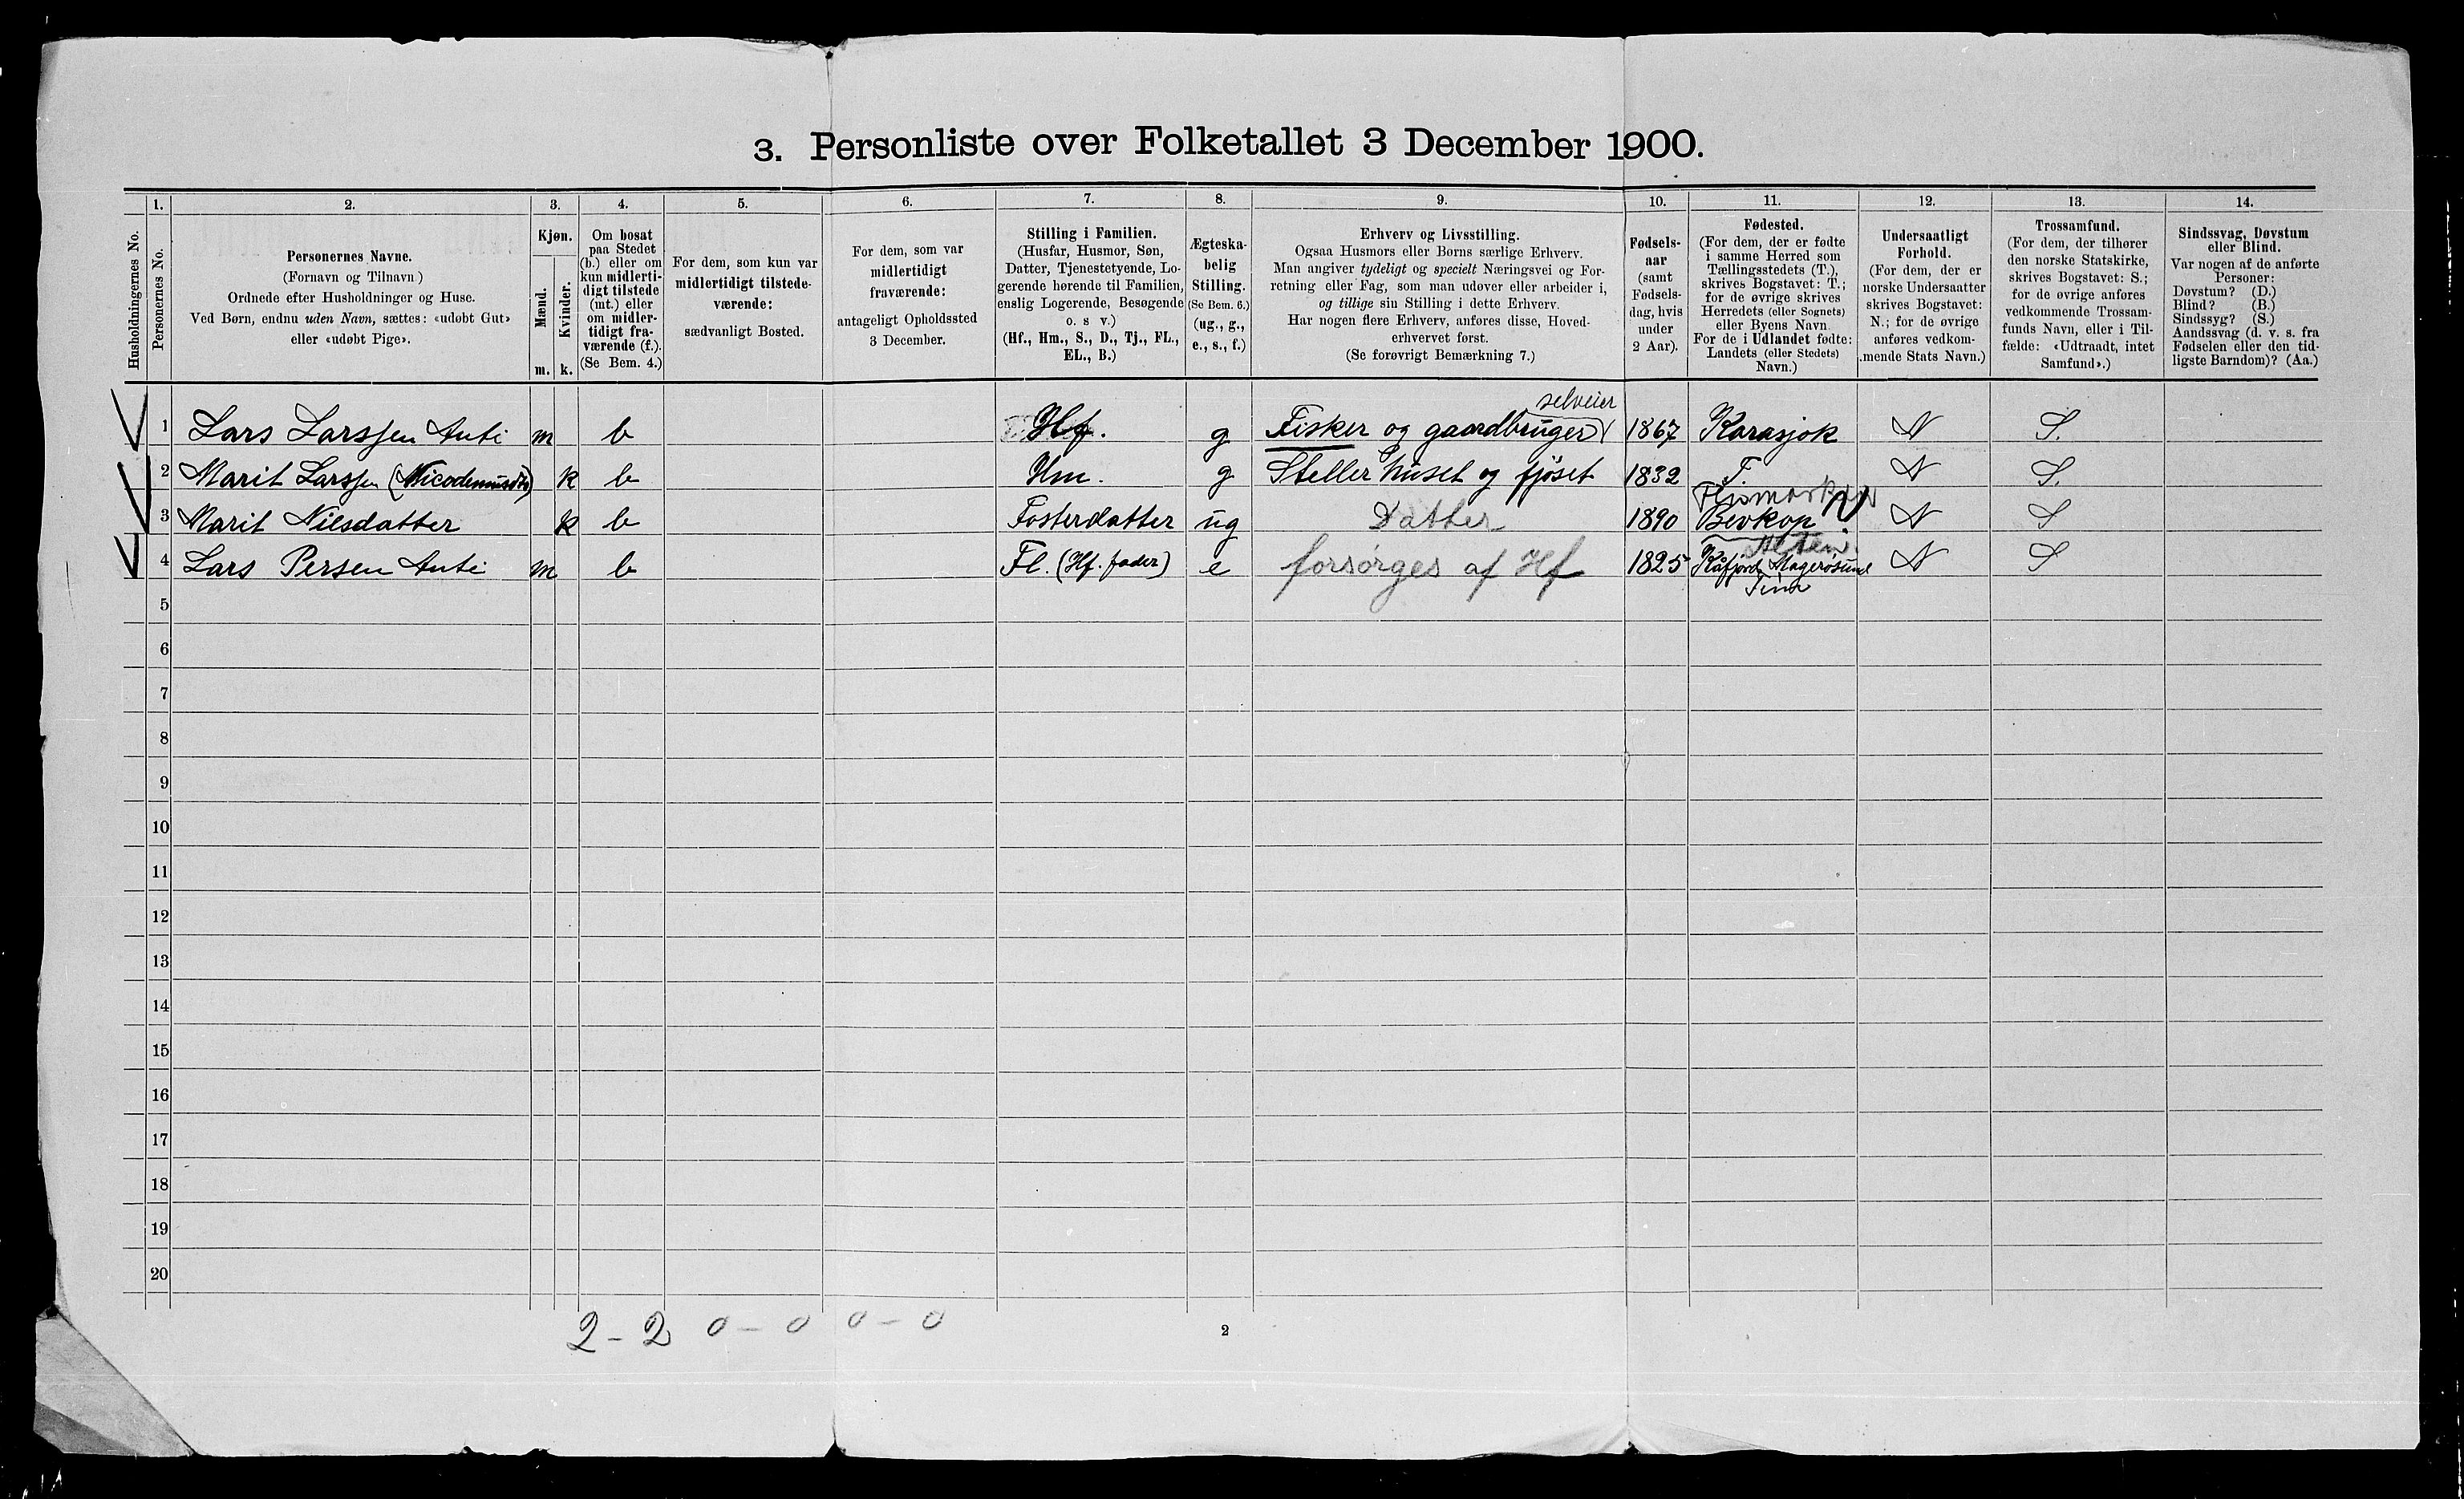 3. Personliste over Folketallet 3 December 1900.
1. 2. 3. 4. 5. 6. 7. 8. 9. 10. 11. 12. 13. 14.
Husholdningernes No.
Personernes No.
Personernes Navne.
(Fornavn og Tilnavn)
Ordnede efter Husholdninger og Huse.
Ved Børn, endnu uden Navn, sættes: «udøbt Gut»
eller «udøbt Pige».
Kjøn.
Mænd.
Kvinder.
m. k.
Om bosat
paa Stedet
(b.) eller om
kun midlerti-
digt tilstede
(mt.) eller
om midler-
tidigt fra-
værende (f.).
(Se Bem. 4.)
For dem, som kun var
midlertidigt tilstede-
værende:
sædvanligt Bosted.
For dem, som var
midlertidigt
fraværende:
antageligt Opholdssted
3 December.
Stilling i Familien.
(Husfar, Husmor, Søn,
Datter, Tjenestetyende, Lo-
gerende hørende til Familien,
enslig Logerende, Besøgende
o. s v.)
(Hf., Hm., S., D., Tj., FL.,
EL., B.)
Ægteska-
belig
Stilling.
(Se Bem. 6.)
(ug., g.,
e., s., f.)
Erhverv og Livsstilling.
Ogsaa Husmors eller Børns særlige Erhverv.
Man angiver tydeligt og specielt Næringsvei og For-
retning eller Fag, som man udøver eller arbeider i,
og tillige sin Stilling i dette Erhverv.
Har nogen flere Erhverv, anføres disse, Hoved-
erhvervet først.
(Se forøvrigt Bemærkning 7.)
Fødsels-
aar
(samt
Fødsels-
dag, hvis
under
2 Aar).
Fødested.
(For dem, der er fødte
i samme Herred som
Tællingsstedets (T.),
skrives Bogstavet: T.;
for de øvrige skrives
Herredets (eller Sognets)
eller Byens Navn
For de i Udlandet fødte:
Landets (eller Stedets)
Navn.)
Undersaatligt
Forhold.
(For dem, der er
norske Undersaatter
skrives Bogstavet:
N.; for de øvrige
anføres vedkom-
mende Stats Navn.)
Trossamfund.
(For dem, der tilhører
den norske Statskirke,
skrives Bogstavet: S.;
for de øvrige anføres
vedkommende Trossam-
funds Navn, eller i Til-
fælde: «Udtraadt, intet
Samfund».)
Sindssvag, Døvstum
eller Blind.
Var nogen af de anførte
Personer:
Døvstum? (D.)
Blind? (B.)
Sindssyg? (S.)
Aandssvag (d. v. s. fra
Fødselen eller den tid-
ligste Barndom)? (Aa.)
selveier
1 Lars Larssen Anti m b Hf. g Fisker og gaardbruger 1867 Karasjok N S.
2 Marit Larssen (Nicodemusdtr) k b Hm. g Steller huset og fjøset 1832 T. N S.
3 Marit Nilsdatter k b Fosterdatter ug Datter 1890 Bevkop N S
Alten.
4 Lars Persen Anti m b Fl. (Hf. fader) e forsørges af Hf 1825 Kåfjord, Magerøsund N S
5
6
7
8
9
10
11
12
13
14
15
16
17
18
19
20
2 - 2 0 - 0 0 - 0
2